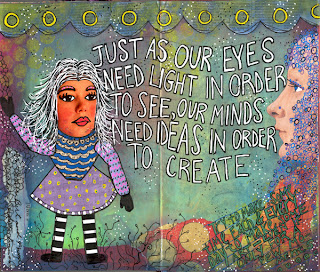 JUST AS OUR EYES
NEED LIGHT IN ORDER
TO SEE, OUR MINDS
NEED IDEAS IN ORDER
TO CREATE